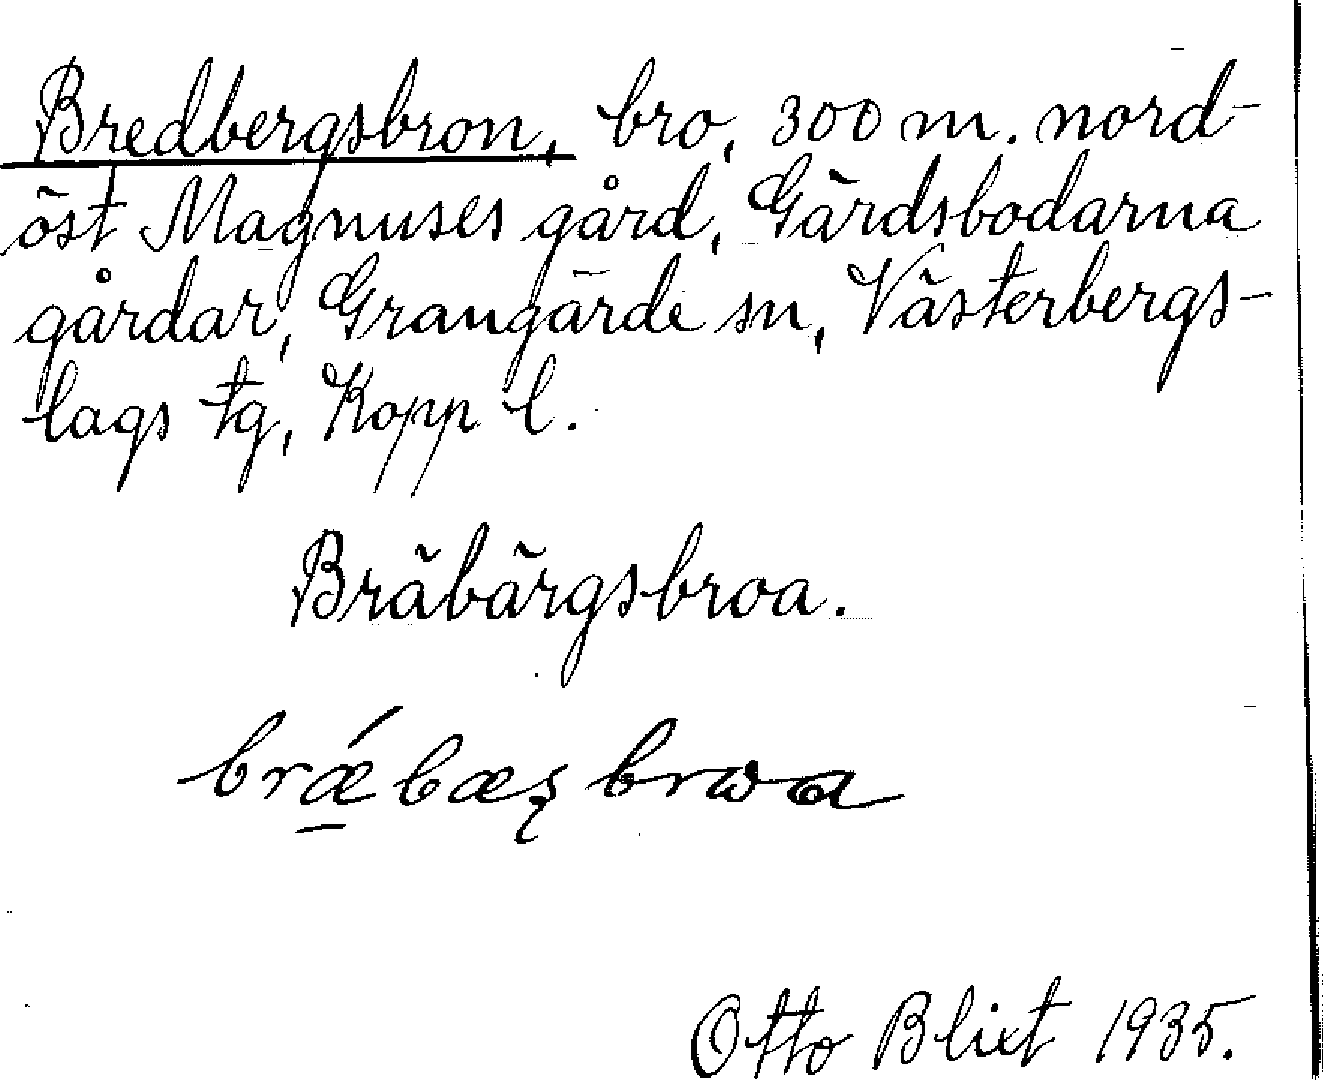 Bredbergsbron, bro, 300 m. nord-
öst Magnuses gård, Gärdsbodarna
gårdar, Grangärde sn, Västerbergs-
lags tg, Kopp l.
Bräbärgsbroa.
brǽ̠bæʂbrωa
Otto Blixt 1935.